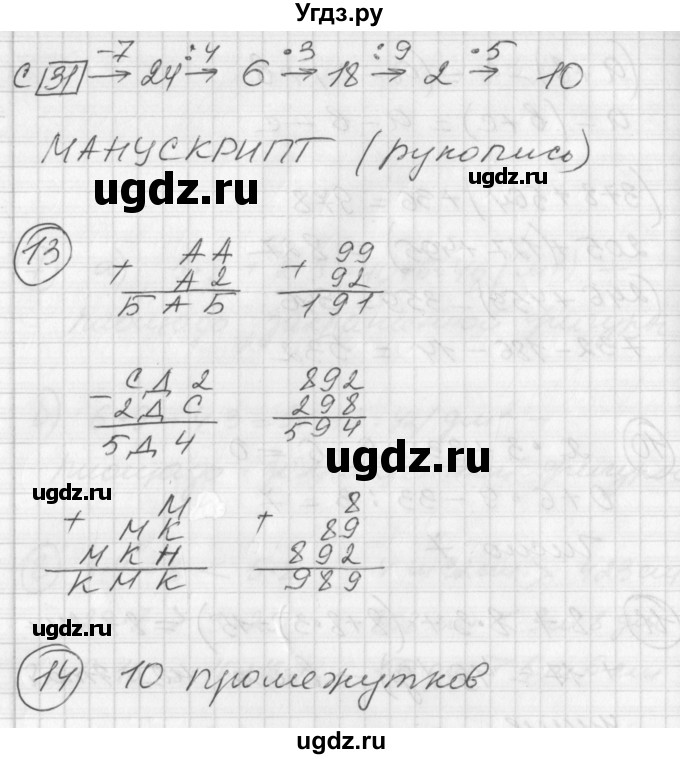 Угдз.ру
-7 :4 ·3 :9 ·5
С 31 → 24 → 6 → 18 → 2 → 10
МАНУСКРИПТ (рукопись)
ugdz.ru ugdz.ru
13 + АА + 99
А2 92
БАБ 191
- СД2 892
2ДС 298
5Д4 594
ugdz.ru
ugdz.ru
+ М + 8
МК 89
МКН 892
КМК 989
ugdz.ru
14 10 промежутков
ugdz.ru
ugdz.ru